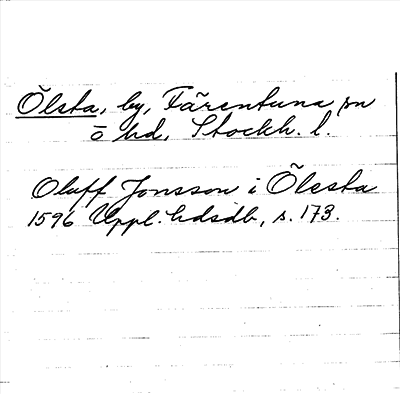 Ölsta, by, Färentuna sn
o hd, Stockh. l.
Oluff Jonsson i Ölesta
1596 Uppl. hdsdb, s. 173.